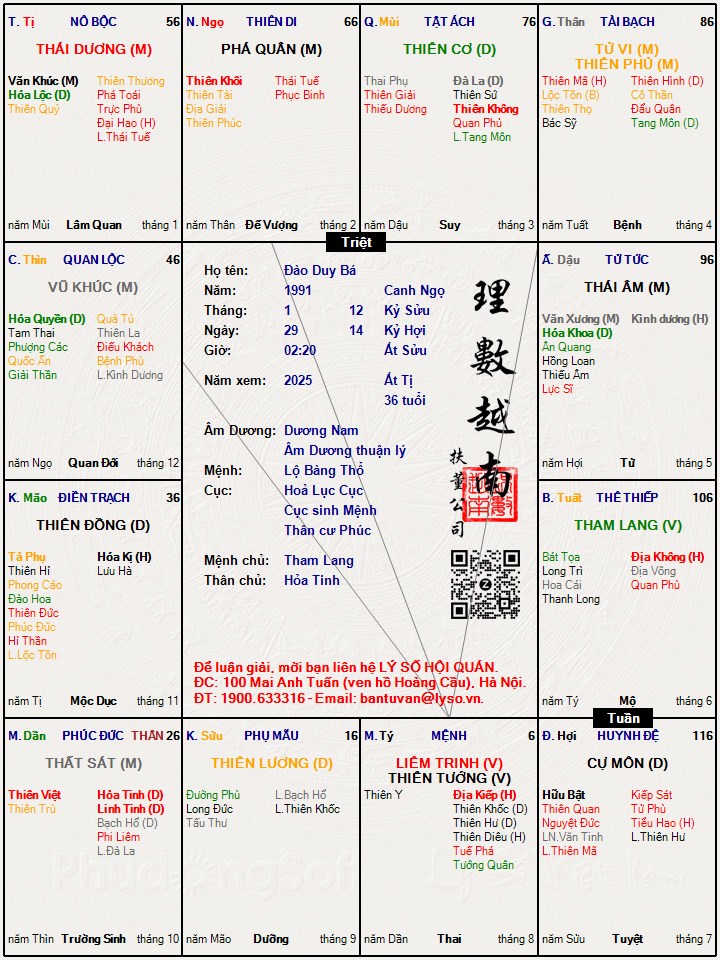 T. Tị NÔ BỘC 56
THÁI DƯƠNG (M)
Văn Khúc (M)
Hóa Lộc (D)
Thiên Quý
Thiên Thương
Phá Toái
Trực Phù
Đại Hao (H)
L.Thái Tuế
năm Mùi Lâm Quan tháng 1
N. Ngọ THIÊN DI 66
PHÁ QUÂN (M)
Thiên Khôi
Thiên Tài
Địa Giải
Thiên Phúc
Thái Tuế
Phục Binh
năm Thân Đế Vượng tháng 2
Q. Mùi TẬT ÁCH 76
THIÊN CƠ (D)
Thai Phụ
Thiên Giải
Thiếu Dương
Đà La (D)
Thiên Sứ
Thiên Không
Quan Phủ
L.Tang Môn
năm Dậu Suy tháng 3
G. Thân TÀI BẠCH 86
TỬ VI (M)
THIÊN PHỦ (M)
Thiên Mã (H)
Lộc Tồn (B)
Thiên Thọ
Bác Sỹ
Thiên Hình (D)
Cô Thần
Đẩu Quân
Tang Môn (D)
năm Tuất Bệnh tháng 4
Triệt
C. Thìn QUAN LỘC 46
VŨ KHÚC (M)
Hóa Quyền (D)
Tam Thai
Phượng Các
Quốc Ấn
Giải Thần
Quả Tú
Thiên La
Điếu Khách
Bệnh Phù
L.Kình Dương
năm Ngọ Quan Đới tháng 12
Họ tên: Đào Duy Bá
Năm: 1991 Canh Ngọ
Tháng: 1 12 Kỷ Sửu
Ngày: 29 14 Kỷ Hợi
Giờ: 02:20 Ất Sửu
Năm xem: 2025 Ất Tị
36 tuổi
Âm Dương: Dương Nam
Âm Dương thuận lý
Mệnh: Lộ Bàng Thổ
Cục: Hoả Lục Cục
Cục sinh Mệnh
Thân cư Phúc
Mệnh chủ: Tham Lang
Thân chủ: Hỏa Tinh
理數越南
扶董公司
Để luận giải, mời bạn liên hệ LÝ SỐ HỘI QUÁN.
ĐC: 100 Mai Anh Tuấn (ven hồ Hoàng Cầu), Hà Nội.
ĐT: 1900.633316 - Email: bantuvan@lyso.vn.
Ấ. Dậu TỬ TỨC 96
THÁI ÂM (M)
Văn Xương (M)
Hóa Khoa (D)
Ân Quang
Hồng Loan
Thiếu Âm
Lực Sĩ
Kình dương (H)
năm Hợi Tử tháng 5
K. Mão ĐIỀN TRẠCH 36
THIÊN ĐỒNG (D)
Tả Phụ
Thiên Hỉ
Phong Cáo
Đào Hoa
Thiên Đức
Phúc Đức
Hỉ Thần
L.Lộc Tồn
Hóa Kị (H)
Lưu Hà
năm Tị Mộc Dục tháng 11
B. Tuất THÊ THIẾP 106
THAM LANG (V)
Bát Tọa
Long Trì
Hoa Cái
Thanh Long
Địa Không (H)
Địa Võng
Quan Phù
năm Tý Mộ tháng 6
Tuần
M. Dần PHÚC ĐỨC THÂN 26
THẤT SÁT (M)
Thiên Việt
Thiên Trù
Hỏa Tinh (D)
Linh Tinh (D)
Bạch Hổ (D)
Phi Liêm
L.Đà La
năm Thìn Trường Sinh tháng 10
K. Sửu PHỤ MẪU 16
THIÊN LƯƠNG (D)
Đường Phù
Long Đức
Tấu Thư
L.Bạch Hổ
L.Thiên Khốc
năm Mão Dưỡng tháng 9
M. Tý MỆNH 6
LIÊM TRINH (V)
THIÊN TƯỚNG (V)
Thiên Y
Địa Kiếp (H)
Thiên Khốc (D)
Thiên Hư (D)
Thiên Diêu (H)
Tuế Phá
Tướng Quân
năm Dần Thai tháng 8
Đ. Hợi HUYNH ĐỆ 116
CỰ MÔN (D)
Hữu Bật
Thiên Quan
Nguyệt Đức
LN.Văn Tinh
L.Thiên Mã
Kiếp Sát
Tử Phù
Tiểu Hao (H)
L.Thiên Hư
năm Sửu Tuyệt tháng 7